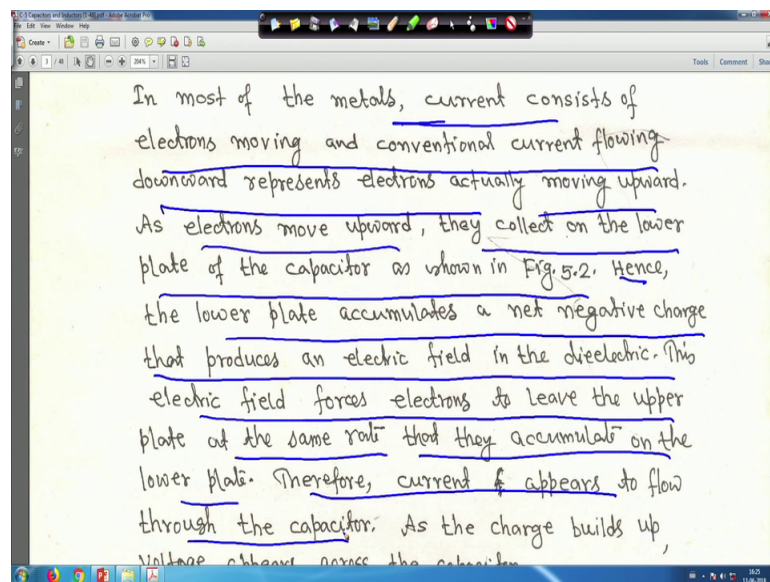 C-5 Capacitors and Inductors [1-48].pdf - Adobe Acrobat Pro
File Edit View Window Help
Create
3 / 48 204% Tools Comment
In most of the metals, current consists of
electrons moving and conventional current flowing
downward represents electrons actually moving upward.
As electrons move upward, they collect on the lower
plate of the capacitor as shown in Fig. 5.2. Hence,
the lower plate accumulates a net negative charge
that produces an electric field in the dielectric. This
electric field forces electrons to leave the upper
plate at the same rate that they accumulate on the
lower plate. Therefore, current appears to flow
through the capacitor. As the charge builds up,
voltage appears across the capacitor
16:25